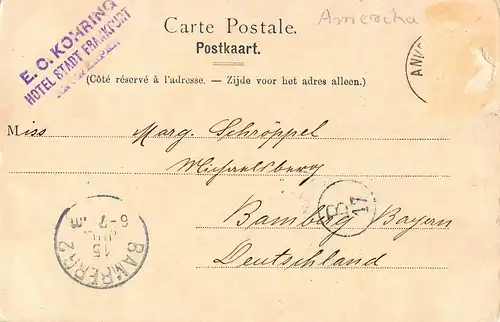 Carte Postale.
Amercka
Postkaart.
E. C. KOHRING
HOTEL STADT FRANKFURT
(Côté réservé à l'adresse. — Zijde voor het adres alleen.)
Miss Marg. Schröppel
Michaelsberg
B
17
Bamberg Bayern
Deutschland
BAMBERG 2
15
6-7